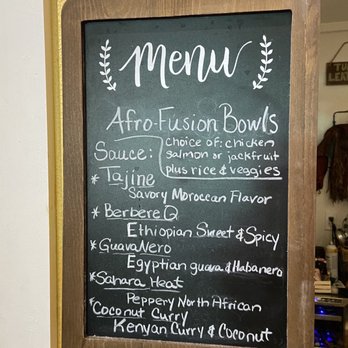 Menu
Afro-Fusion Bowls
Sauce: choice of: chicken
salmon or jackfruit
plus rice & veggies
* Tajine
Savory Moroccan Flavor
* Berbere Q
Ethiopian Sweet & Spicy
* GuavaNero
Egyptian guava & Habanero
* Sahara Heat
Peppery North African
* Coconut Curry
Kenyan Curry & Coconut